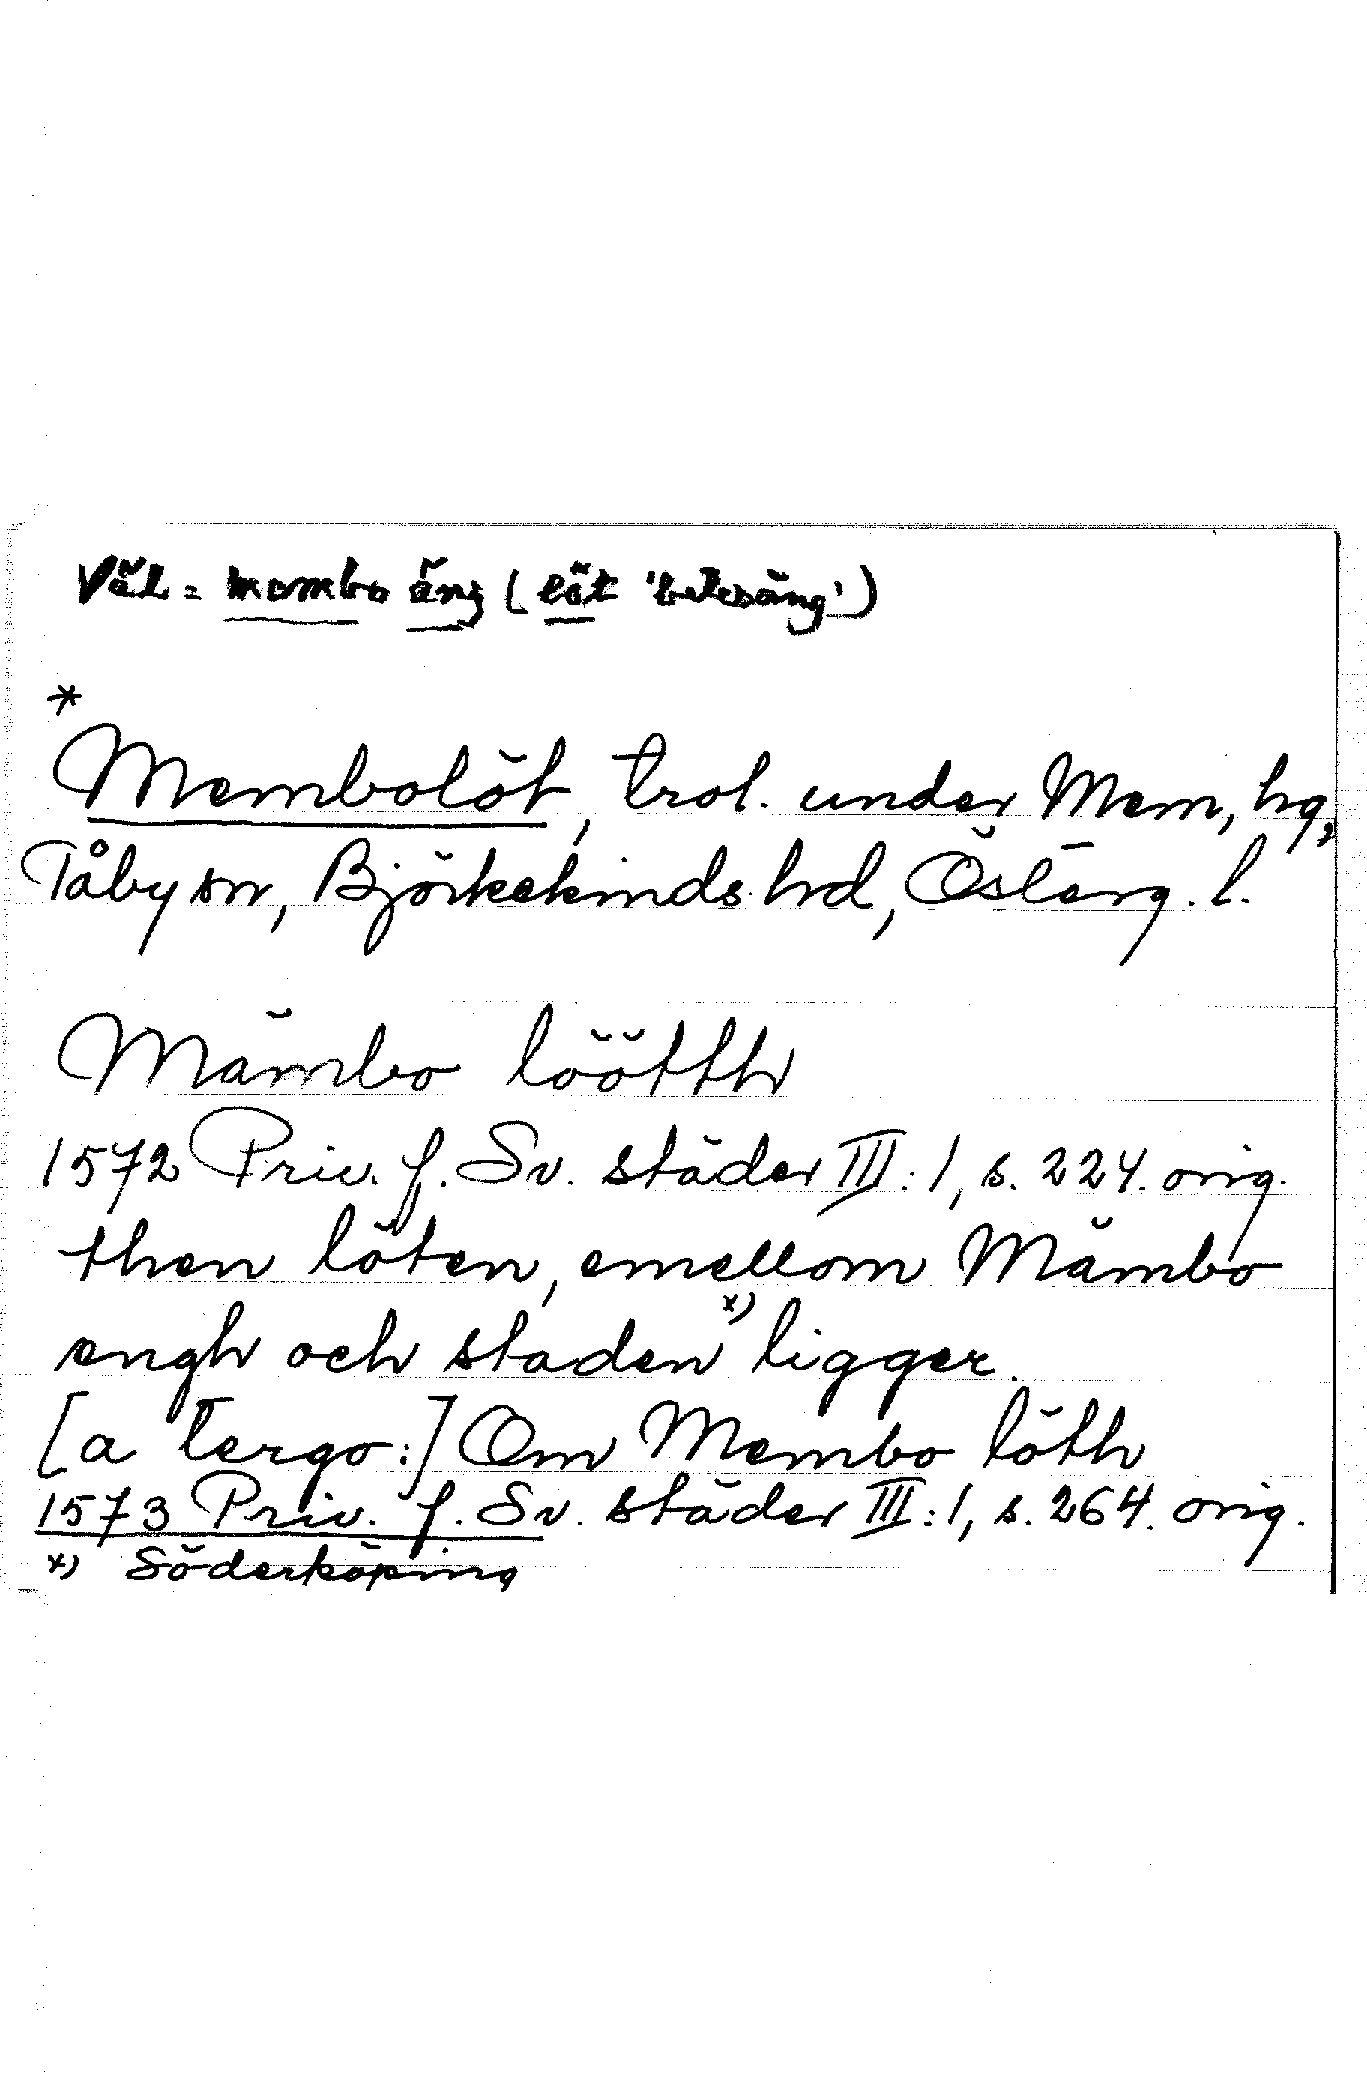 Väl = Membo äng (löt 'betesäng')
*
Membolöt, trol. under Mem, hg,
Tåby sn, Björkekinds hd, Österg. l.
Mämbo löötth
1572 Priv. f. Sv. städer III:1, s. 224. orig.
then löten, emellom Mämbo
engh och staden x) ligger.
[a tergo:] Om Membo löth
1573 Priv. f. Sv. städer III:1, s. 264. orig.
x) Söderköping